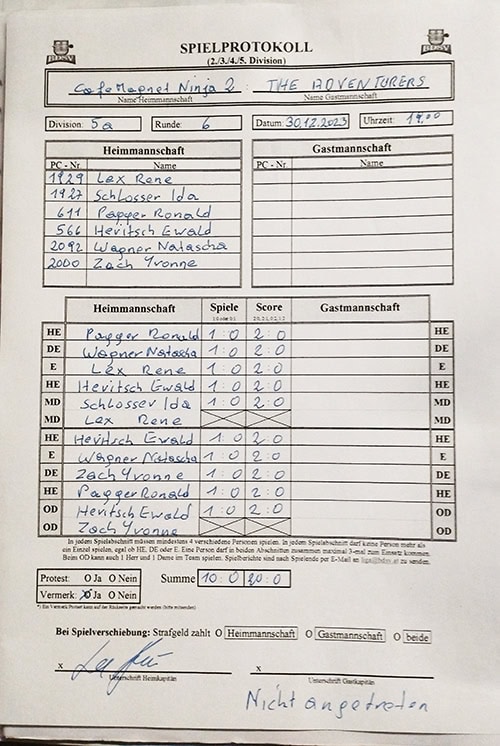 BDSV BDSV
SPIELPROTOKOLL
(2./3./4./5. Division)
CafeMagnet Ninja 2 : THE ADVENTURERS
Name Heimmannschaft Name Gastmannschaft
Division: 5a Runde: 6 Datum: 30.12.2023 Uhrzeit: 19,00
Heimmannschaft Gastmannschaft
PC - Nr. Name PC - Nr. Name
1929 Lex Rene
1927 Schlosser Ida
611 Pagger Ronald
566 Heritsch Ewald
2092 Wagner Natascha
2000 Zach Yvonne
Heimmannschaft Spiele Score Gastmannschaft
HE Pagger Ronald 1:0 2:0 HE
DE Wagner Natascha 1:0 2:0 DE
E Lex Rene 1:0 2:0 E
HE Heritsch Ewald 1:0 2:0 HE
MD Schlosser Ida 1:0 2:0 MD
MD Lex Rene MD
HE Heritsch Ewald 1:0 2:0 HE
E Wagner Natascha 1:0 2:0 E
DE Zach Yvonne 1:0 2:0 DE
HE Pagger Ronald 1:0 2:0 HE
OD Heritsch Ewald 1:0 2:0 OD
OD Zach Yvonne OD
In jedem Spielabschnitt müssen mindestens 4 verschiedene Personen spielen. In jedem Spielabschnitt darf keine Person mehr als
ein Einzel spielen, egal ob HE, DE oder E. Eine Person darf in beiden Abschnitten zusammen maximal 3-mal zum Einsatz kommen.
Beim OD kann auch 1 Herr und 1 Dame im Team spielen. Spielberichte sind nach Spielende per E-Mail an zu senden
Protest: O Ja O Nein Summe 10:0 20:0
Vermerk: O Ja O Nein
*) Ein Vermerk Protest kann auf der Rückseite gemacht werden (bitte ankreuzen)
Bei Spielverschiebung: Strafgeld zahlt O Heimmannschaft O Gastmannschaft O beide
x x
Unterschrift Heimkapitän Unterschrift Gastkapitän
Nicht angetreten